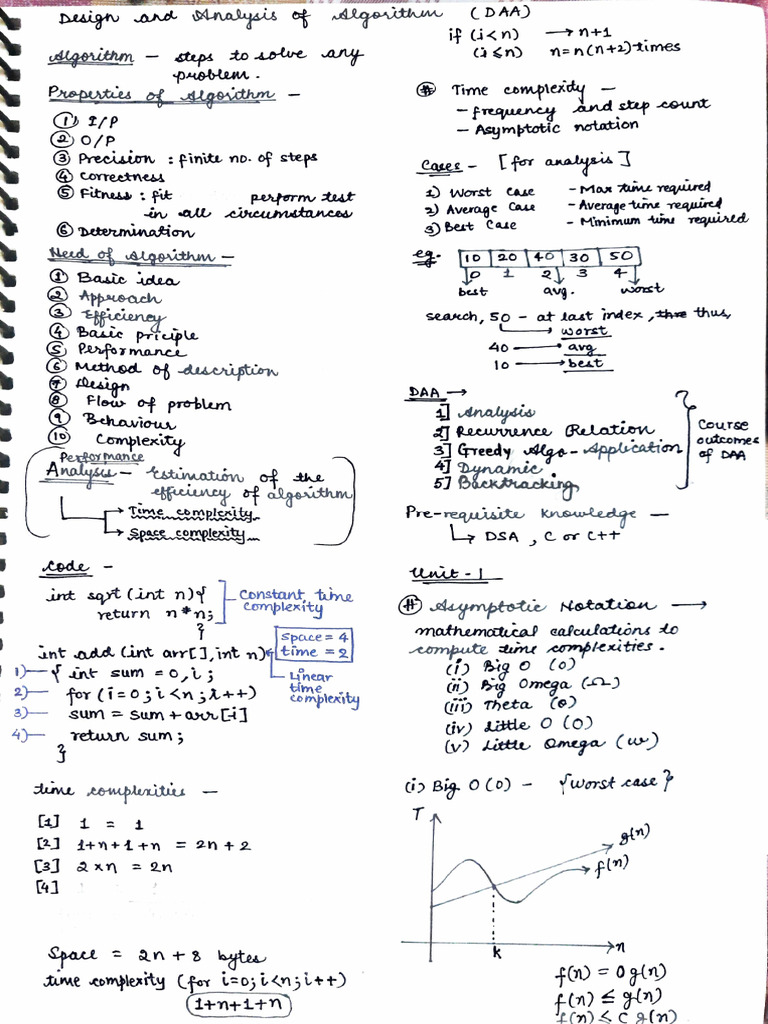 Design and Analysis of Algorithm (DAA)
Algorithm - steps to solve any
problem.
Properties of Algorithm -
① I/P
② O/P
③ Precision : finite no. of steps
④ Correctness
⑤ Fitness : fit perform test
in all circumstances
⑥ Determination
Need of Algorithm -
① Basic idea
② Approach
③ Efficiency
④ Basic priciple
⑤ Performance
⑥ Method of description
⑦ Design
⑧ Flow of problem
⑨ Behaviour
⑩ Complexity
Performance
Analysis - Estimation of the
efficiency of algorithm
→ Time complexity
→ Space complexity
Code -
int sqrt (int n) {
return n*n;
}
Constant time
complexity
int add (int arr[], int n)
space = 4
time = 2
Linear
time
complexity
1) { int sum = 0, i ;
2) for (i = 0 ; i < n ; i++)
3) sum = sum + arr[i]
4) return sum ;
}
time complexities -
[1] 1 = 1
[2] 1+n+1+n = 2n+2
[3] 2×n = 2n
[4]
Space = 2n + 8 bytes
time complexity (for i=0; i<n; i++)
1+n+1+n
if (i < n) → n+1
(i ≤ n) n = n(n+2) times
# Time complexity -
- frequency and step count
- Asymptotic notation
Cases - [for analysis]
1) Worst Case - Max time required
2) Average Case - Average time required
3) Best Case - Minimum time required
eg. 10 20 40 30 50
0 1 2 3 4
best avg. worst
search, 50 - at last index, thus,
→ worst
40 → avg
10 → best
DAA →
1] Analysis
2] Recurrence Relation
3] Greedy Algo - Application
4] Dynamic
5] Backtracking
Course
outcomes
of DAA
Pre-requisite Knowledge -
↳ DSA , C or C++
Unit - 1
# Asymptotic Notation →
mathematical calculations to
compute time complexities.
(i) Big O (O)
(ii) Big Omega (Ω)
(iii) Theta (θ)
(iv) Little O (O)
(v) Little Omega (w)
(i) Big O (O) - {Worst case}
T
g(n)
f(n)
k
n
f(n) = O g(n)
f(n) ≤ g(n)
f(n) ≤ c g(n)